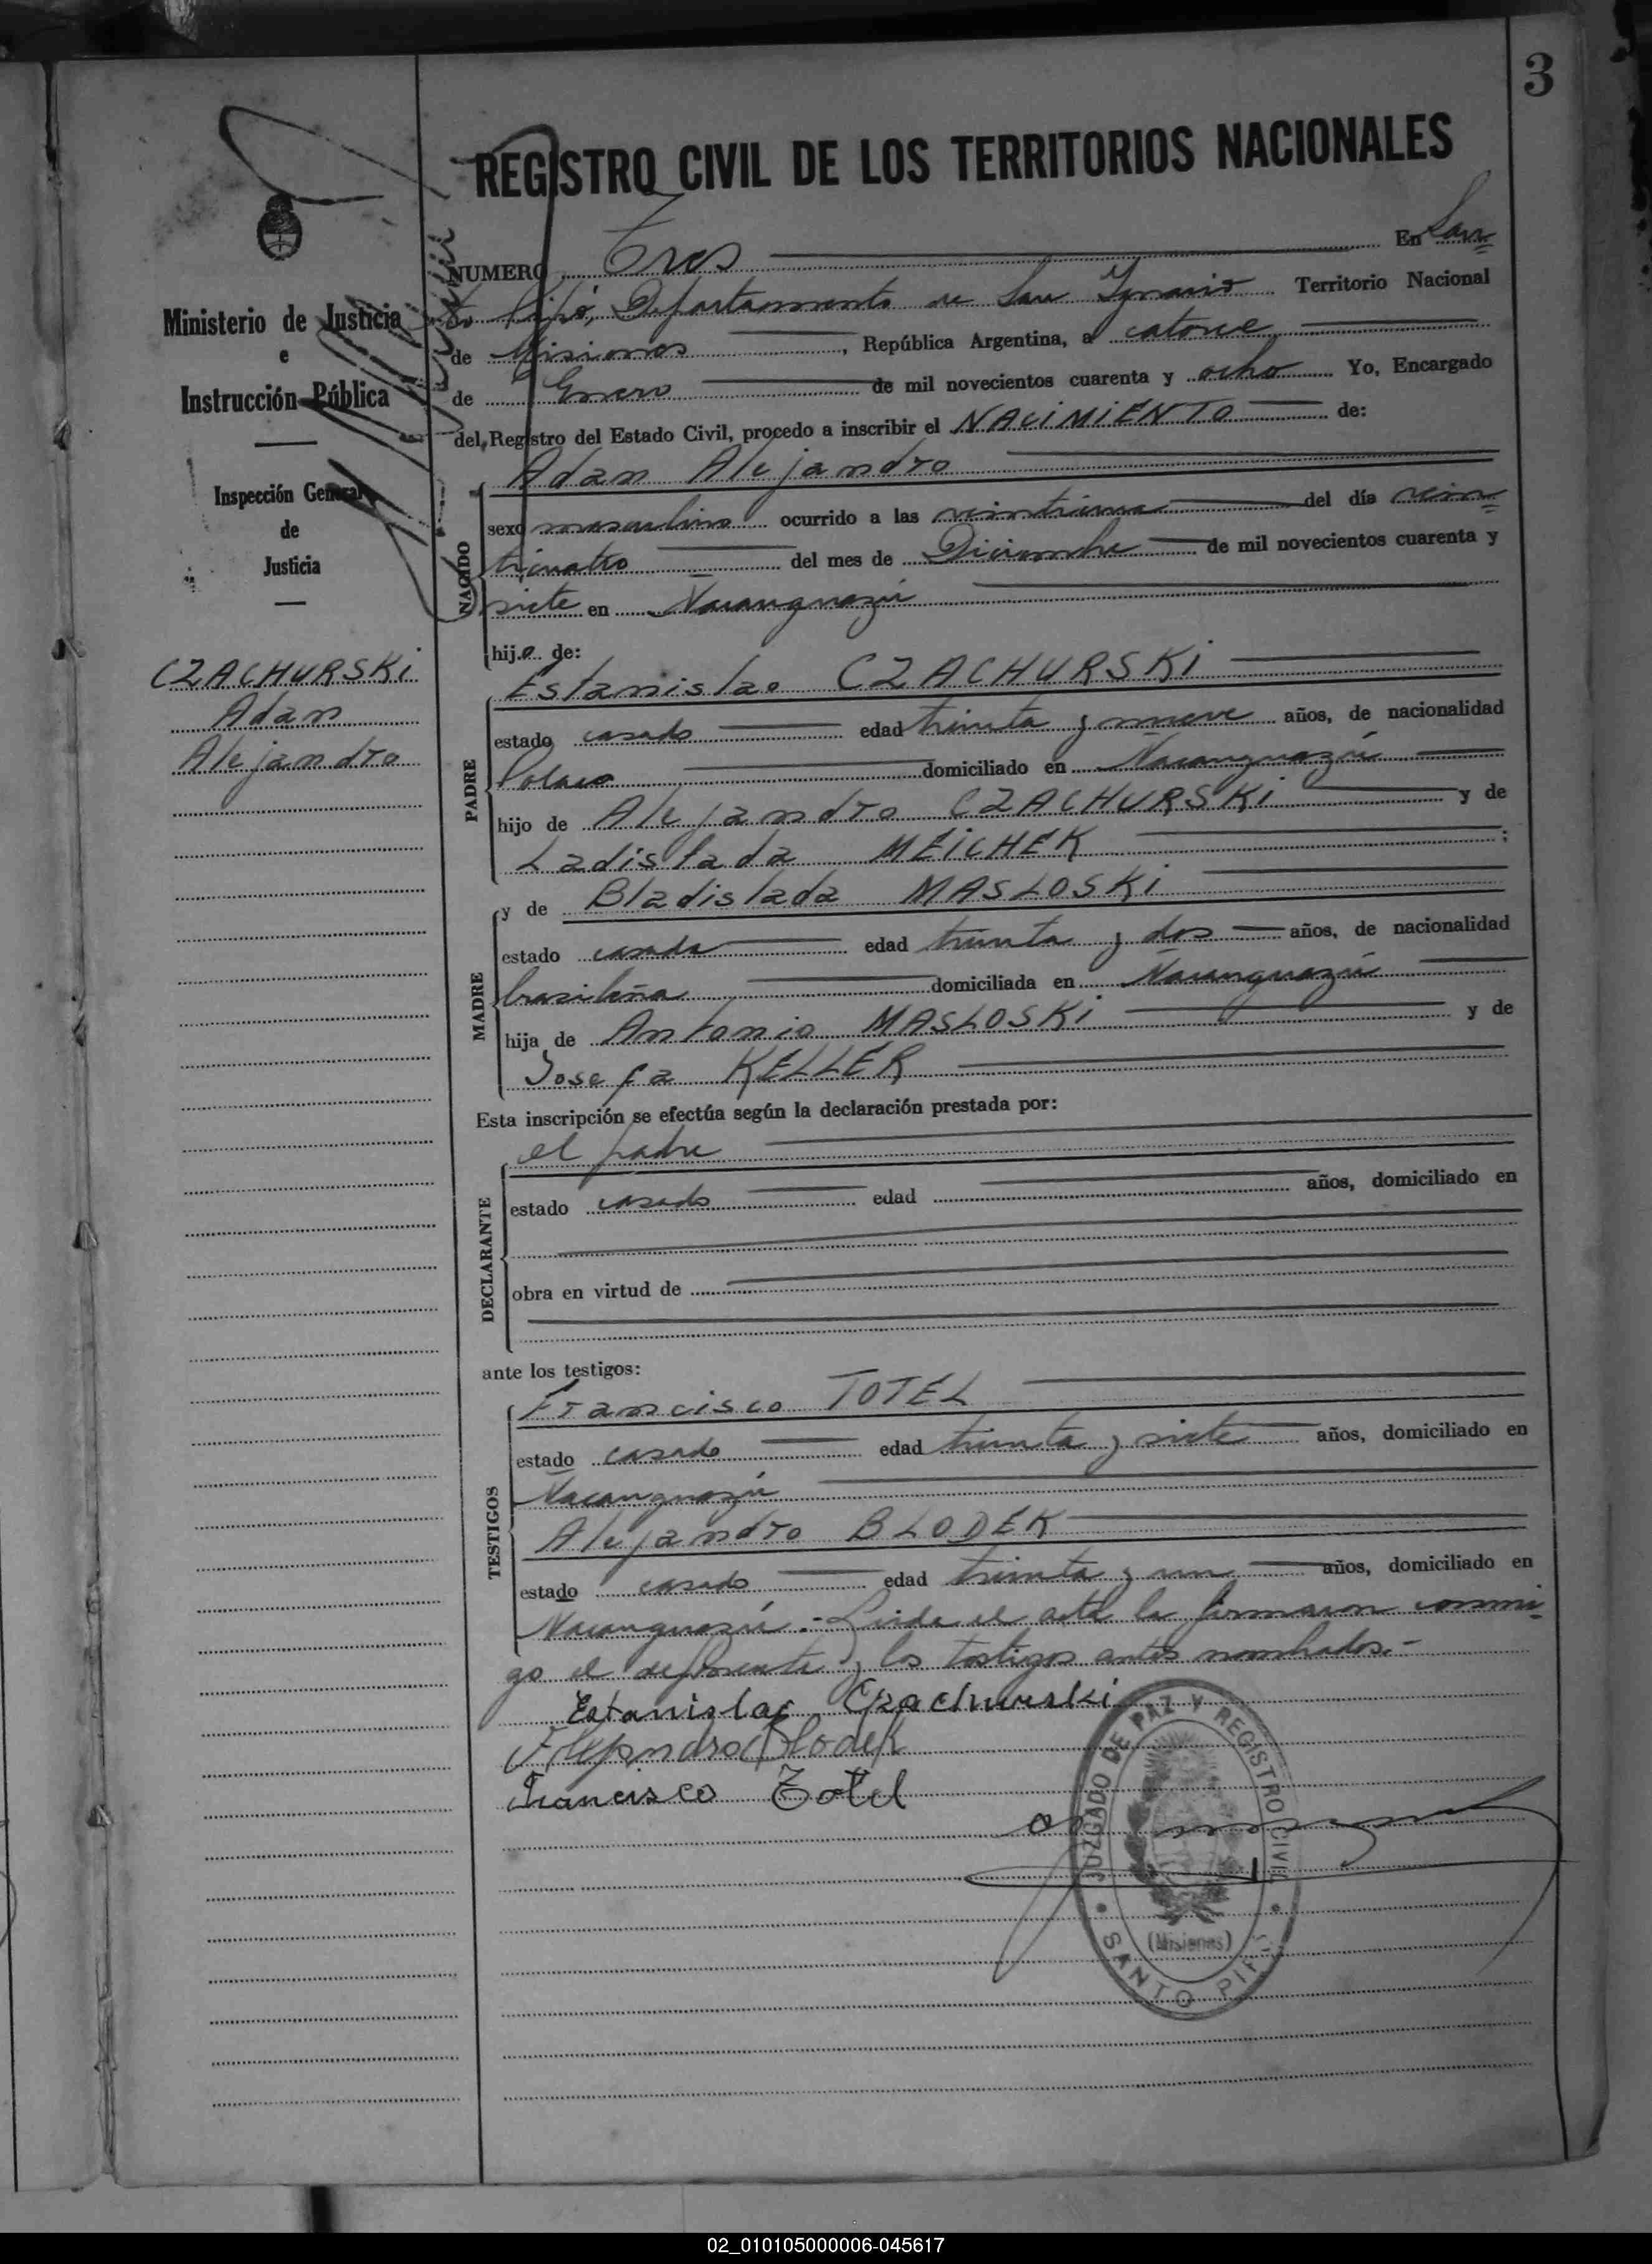 3
REGISTRO CIVIL DE LOS TERRITORIOS NACIONALES
Ministerio de Justicia
e
Instrucción Pública
Inspección General
de
Justicia
CZACHURSKi
Adan
Alejandro
NUMERO Tres En San=
to Pipó, Departamento de San Ignacio Territorio Nacional
de Misiones, República Argentina, a catorce
de Enero de mil novecientos cuarenta y ocho Yo, Encargado
del Registro del Estado Civil, procedo a inscribir el NACiMiENTO de:
NACIDO
Adan Alejandro
sexo masculino ocurrido a las del día vein=
ticuatro del mes de Diciembre de mil novecientos cuarenta y
siete en Ñacanguazú
hijo de:
PADRE
Estanislao CZACHURSKi
estado casado edad treinta y nueve años, de nacionalidad
Polaco domiciliado en Ñacanguazú
hijo de Alejandro CZACHURSKi y de
Ladislada MEiCHEK ;
MADRE
y de Bladislada MASLOSKi
estado casada edad treinta y dos años, de nacionalidad
brasileña domiciliada en Ñacanguazú
hija de Antonio MASLOSKi y de
Josefa KELLER
Esta inscripción se efectúa según la declaración prestada por:
DECLARANTE
el padre
estado casado edad años, domiciliado en
obra en virtud de
ante los testigos:
TESTIGOS
Francisco TOTEL
estado casado edad treinta y siete años, domiciliado en
Ñacanguazú
Alejandro BLODEK
estado casado edad treinta y un años, domiciliado en
Ñacanguazú.- Leída el acta la firmaron conmi=
go el deponente y los testigos antes nombrados.-
Estanislao Czachurski
Alejandro Blodek
Francisco Totel
JUZGADO DE PAZ Y REGISTRO CIVIL
(Misiones)
SANTO PIPÓ
02_010105000006-045617